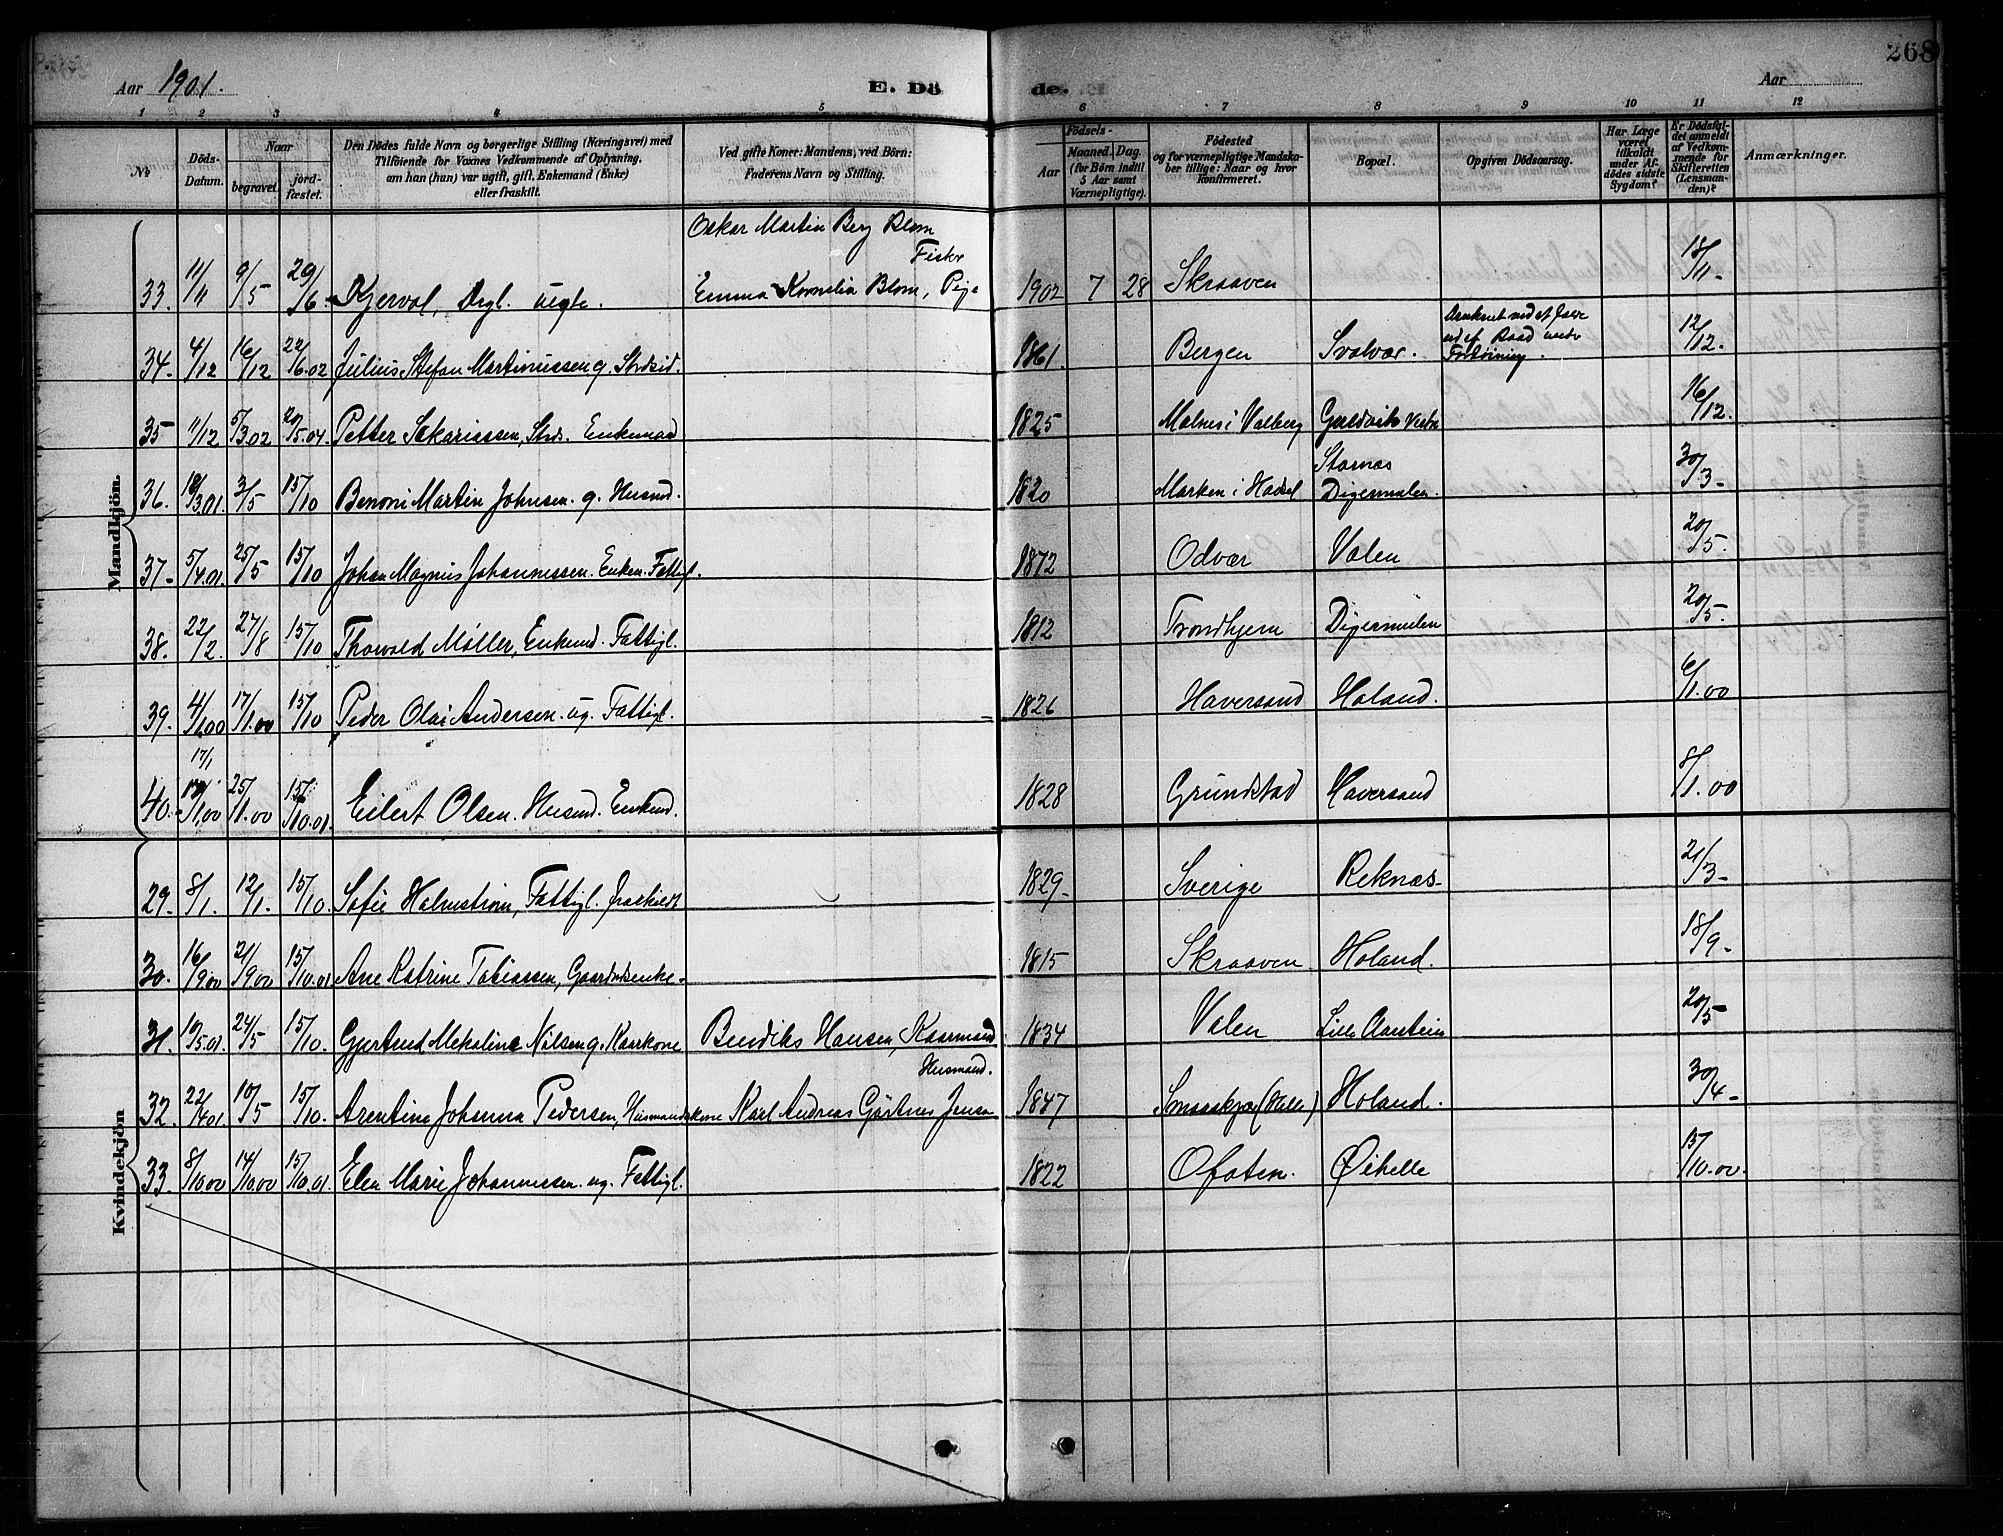 268
Aar 1901.
E. Dö
de.
Aar
1 2 3 4 5 6 7 8 9 10 11 12
No
Döds-Datum.
Naar
begravet.
jord-fæstet.
Den Dödes fulde Navn og borgerlige Stilling (Næringsvei) med
Tilföiende for Voxnes Vedkommende af Oplysning,
om han (hun) var ugift, gift, Enkemand (Enke)
eller fraskilt.
Ved gifte Koner: Mandens, ved Börn:
Faderens Navn og Stilling.
Födsels-
Aar
Maaned. Dag.
(for Börn indtil
5 Aar samt
Værnepligtige).
Födested
og for værnepligtige Mandska-
ber tillige: Naar og hvor
konfirmeret.
Bopæl.
Opgiven Dödsaarsag.
Har Læge
været
tilkaldt
under Af-
dödes sidste
Sygdom?
Er Dödsfal-
det anmeldt
af Vedkom-
mende for
Skifteretten
(Lensman-
den)?
Anmærkninger.
Mandkjön.
Oskar Martin Berg Blom
Fisker
33. 11/11 9/5 29/6 Kjerval, Degl. uegte. Emma Kornelia Blom, Pige 1902 7 28 Skraaven 18/11
34. 4/12 16/12 22/6.02 Julius Stefan Martinussen g. Strdsid. 1861. Bergen Svolvær. 12/12.
35 11/12 5/3.02 Petter Sakariassen, Strds. Enkemand 1825 Molnes i Valberg 16/12.
36. 3/5 15/10 Benoni Martin Johnsen. g. Husmd. 1820 Marken i Hadsel Stornæs Digermulen. 30/3
37. 5/4.01. 25/5 15/10 Johan Magnus Johannessen. Enkem. Fattigl. 1872 Odvær Valen 20/5.
38. 22/2 27/8 15/10 Thorvald Møller, Enkmd. Fattigl. 1812 Trondhjem Digermulen 20/5.
39. 4/1.00 17/1.00 15/10 Peder Olai Andersen. ug. Fattigl. 1826 Haversand Holand. 6/1.00
17/1
40. 25/1.00 15/10.01. Eilert Olsen. Husmd. Enkmd. 1828 Grundstad Haversand 8/1.00
Kvindekjön
29. 8/1. 12/1. 15/10. Sofie Holmstrøm, Fattigl. fraskildt 1829 Sverige Reknæs 21/3
30. 16/9.00 21/9.00 15/10.01 Ane Katrine Tobiassen, Gaardmdsenke. 1815 Skraaven Holand. 18/9
31. 19/5.01. 24/5 15/10. Gjertrud Mekaline Nilsen g. Kaarkone Bendiks Hansen, Kaarmand 1834 Valen Lille 20/5
Husmand.
32. 22/4.01. 10/5 15/10. Arentine Johanna Pedersen, Husmandskone Karl Andreas Gärtner Jensen 1847 Holand. 30/4
33. 8/10.00 14/10.00 15/10.01. Elen Marie Johannessen. ug. Fattigl. 1822 Ofoten. Øihelle 15/10.00.